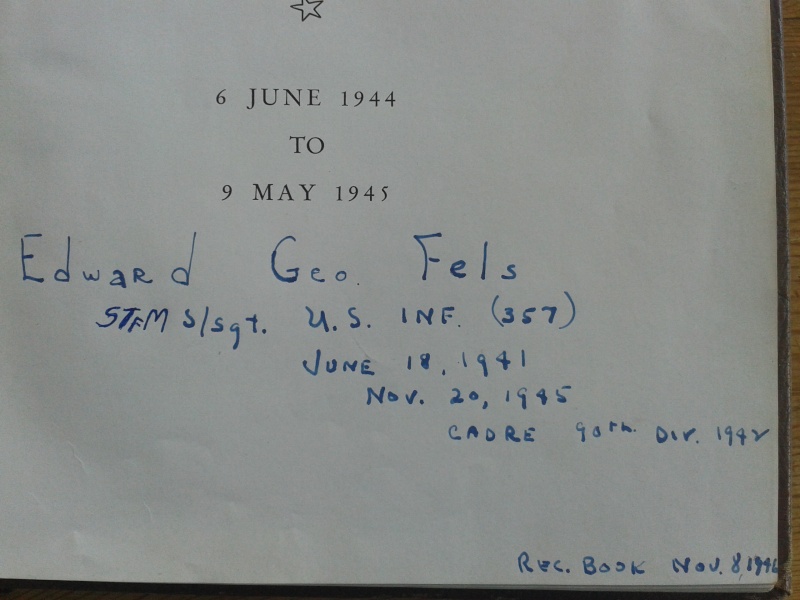 6 JUNE 1944
TO
9 MAY 1945
Edward Geo. Fels
S/Sgt. U.S. INF. (357)
JUNE 18, 1941
NOV. 20, 1945
CADRE 90th. DIV. 1942
REC. BOOK NOV. 8, 1946